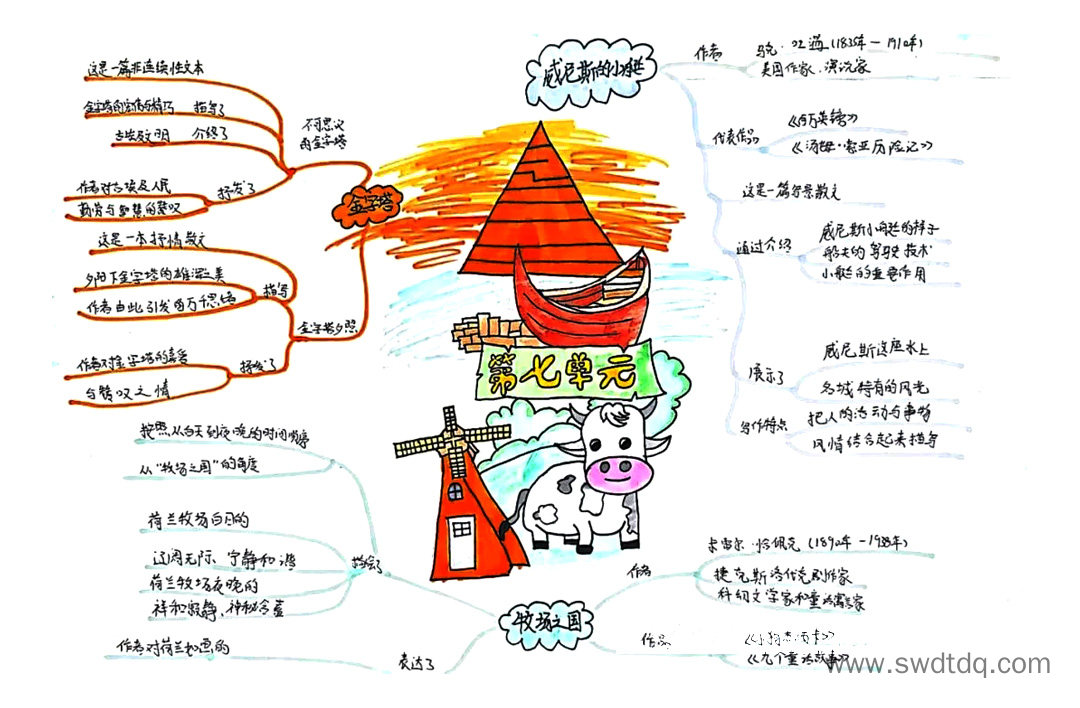 威尼斯的小艇
作者
马克·吐温(1835年—1910年)
美国作家、演说家
代表作品
《百万英镑》
《汤姆·索亚历险记》
这是一篇写景散文
通过介绍
威尼斯小艇的样子
船夫的驾驶技术
小艇的重要作用
展示了
威尼斯这座水上
名城特有的风光
写作特点
把人的活动与事物
风情结合起来描写
金字塔
不可思议
的金字塔
这是一篇非连续性文本
描写了
介绍了
古埃及文明
抒发了
作者对古埃及人民
勤劳与智慧的赞叹
金字塔夕照
这是一本抒情散文
描写
夕阳下金字塔的雄浑之美
作者由此引发的万千思绪
抒发了
作者对金字塔的喜爱
与赞叹之情
第七单元
牧场之国
按照从白天到夜晚的时间顺序
从“牧场之国”的角度
描绘了
荷兰牧场白日的
辽阔无际、宁静和谐
荷兰牧场夜晚的
祥和寂静、神秘含蓄
表达了
作者对荷兰如画的
作者
卡雷尔·恰佩克(1890年—1938年)
捷克斯洛伐克剧作家
科幻文学家和童话寓言家
作品
《九个童话故事》
www.swdtdq.com